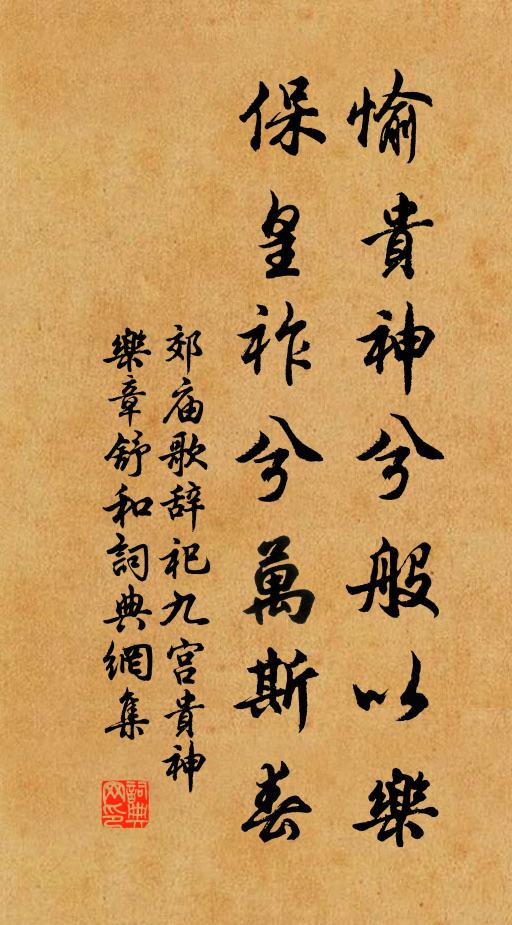 愉貴神兮般以樂
保皇祚兮萬斯春
郊庙歌辞祀九宫貴神
樂章舒和詞典網集
詞典
网印